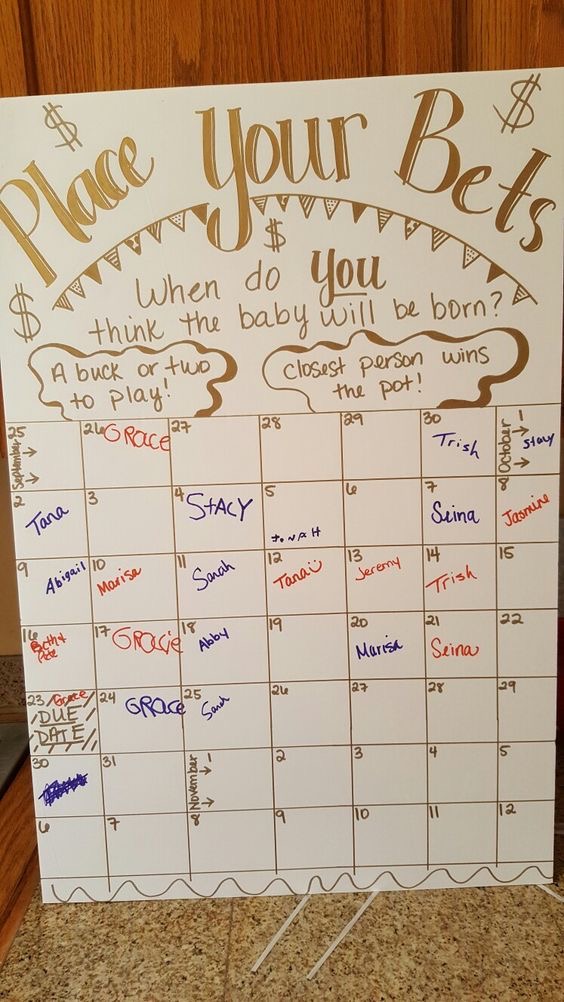 $ $
Place Your Bets
$ $
When do you
think the baby will be born?
A buck or two
to play!
closest person wins
the pot!
25 September → → 26 GRACE 27 28 29 30 Trish October → → 1 Stacy
2 Tana 3 4 STACY 5 6 7 Seina 8 Jasmine
9 Abigail 10 Marisa 11 Sarah 12 Tana 13 Jeremy 14 Trish 15
16 17 GRACIE 18 Abby 19 20 Marisa 21 Seina 22
23 Grace DUE DATE 24 GRACE 25 Sarah 26 27 28 29
30 31 November → → 1 2 3 4 5
6 7 8 9 10 11 12